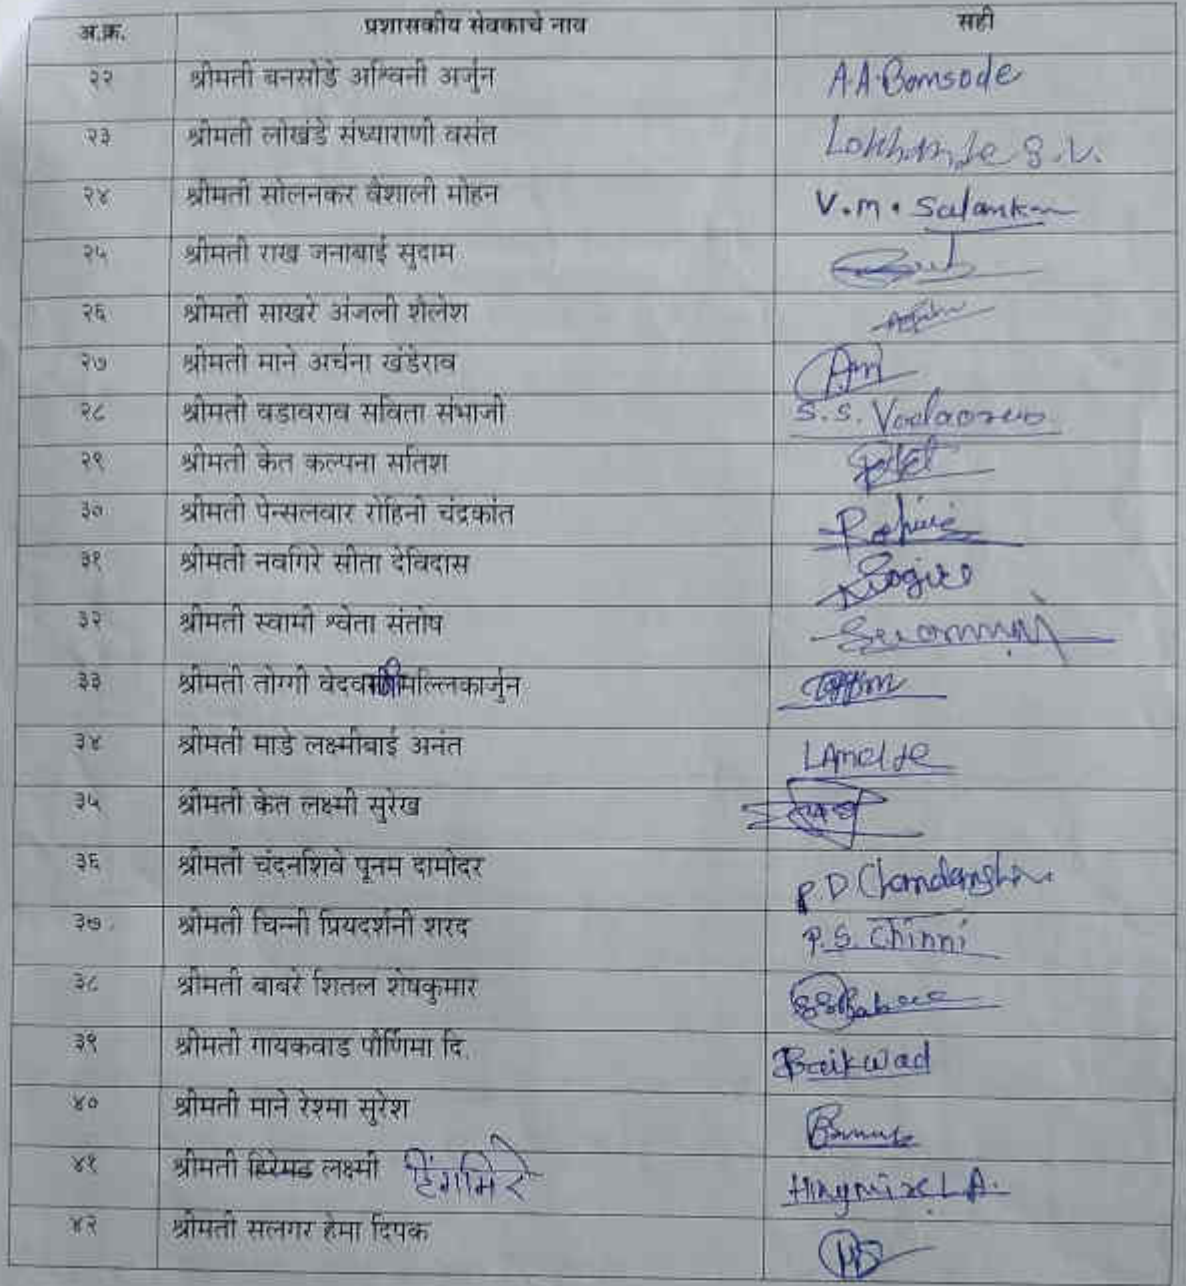 अ.क्र. प्रशासकीय सेवकाचे नाव सही
२२ श्रीमती बनसोडे अश्विनी अर्जुन A.A.Bomsode
२३ श्रीमती लोखंडे संध्याराणी वसंत
२४ श्रीमती सोलनकर वैशाली मोहन V.M. Salankar
२५ श्रीमती राख जनाबाई सुदाम
२६ श्रीमती साखरे अंजली शैलेश
२७ श्रीमती माने अर्चना खंडेराव
२८ श्रीमती वडावराव सविता संभाजी S.S.
२९ श्रीमती केत कल्पना सतिश
३० श्रीमती पेन्सलवार रोहिनी चंद्रकांत
३१ श्रीमती नवगिरे सीता देविदास
३२ श्रीमती स्वामी श्वेता संतोष
३३ श्रीमती तोग्गी मल्लिकार्जुन
३४ श्रीमती माडे लक्ष्मीबाई अनंत
३५ श्रीमती केत लक्ष्मी सुरेख
३६ श्रीमती चंदनशिवे पूनम दामोदर P.D.
३७ श्रीमती चिन्नी प्रियदर्शनी शरद P.S. Chinni
३८ श्रीमती बाबरे शितल शेषकुमार
३९ श्रीमती गायकवाड पौर्णिमा दि.
४० श्रीमती माने रेश्मा सुरेश
४१ श्रीमती हिरेमठ लक्ष्मी हिंगमिरे Hingmire L.A.
४२ श्रीमती सलगर हेमा दिपक